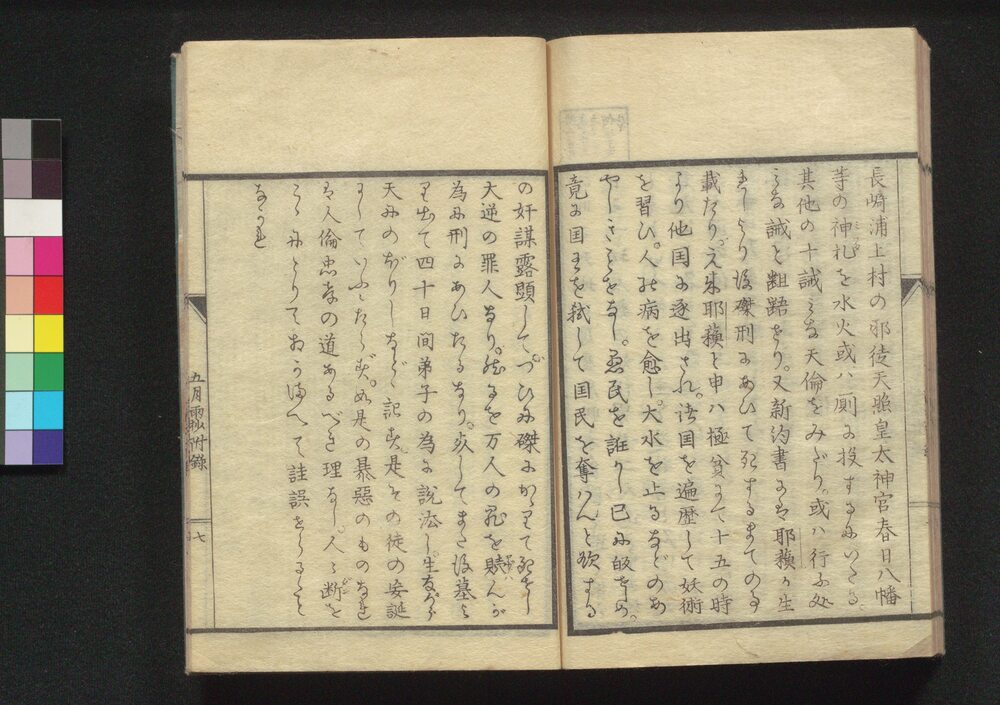 長崎浦上村の邪徒天照皇太神宮春日八幡
等の神札を水火或ハ厠に投するにいたる
其他の十誡みな天倫をみだり。或ハ行ふ処
みな誡と齟齬せり。又新約書には耶蘓が生
れしより後磔刑にあひて死するまでの事
載たり。元来耶蘓と申ハ極貧にて十五の時
より他国に逐出され。諸国を遍歴して妖術
を習ひ。人の病を愈し。大水を止るなどのあ
やしきことをなし。愚民を誑かし已に
竟に国王を弑して国民を奪ハんと欲する
の奸謀露顕して。つひに磔にかゝりて死せし
大逆の罪人なり。然るを万人の罪を贖んが
為に刑にあひたるなり。矣してまた後墓よ
り出て四十日間弟子の為に説法し。生ながら
天にのぼりしなど記せり。是その徒の妄誕
にしていふにたらず。如是の暴惡のものなれ
は人倫忠孝の道あるべき理なし。人々断を
こゝにとりておかゆへて詿誤せらるゝこと
なかれ
五月雨附錄
七